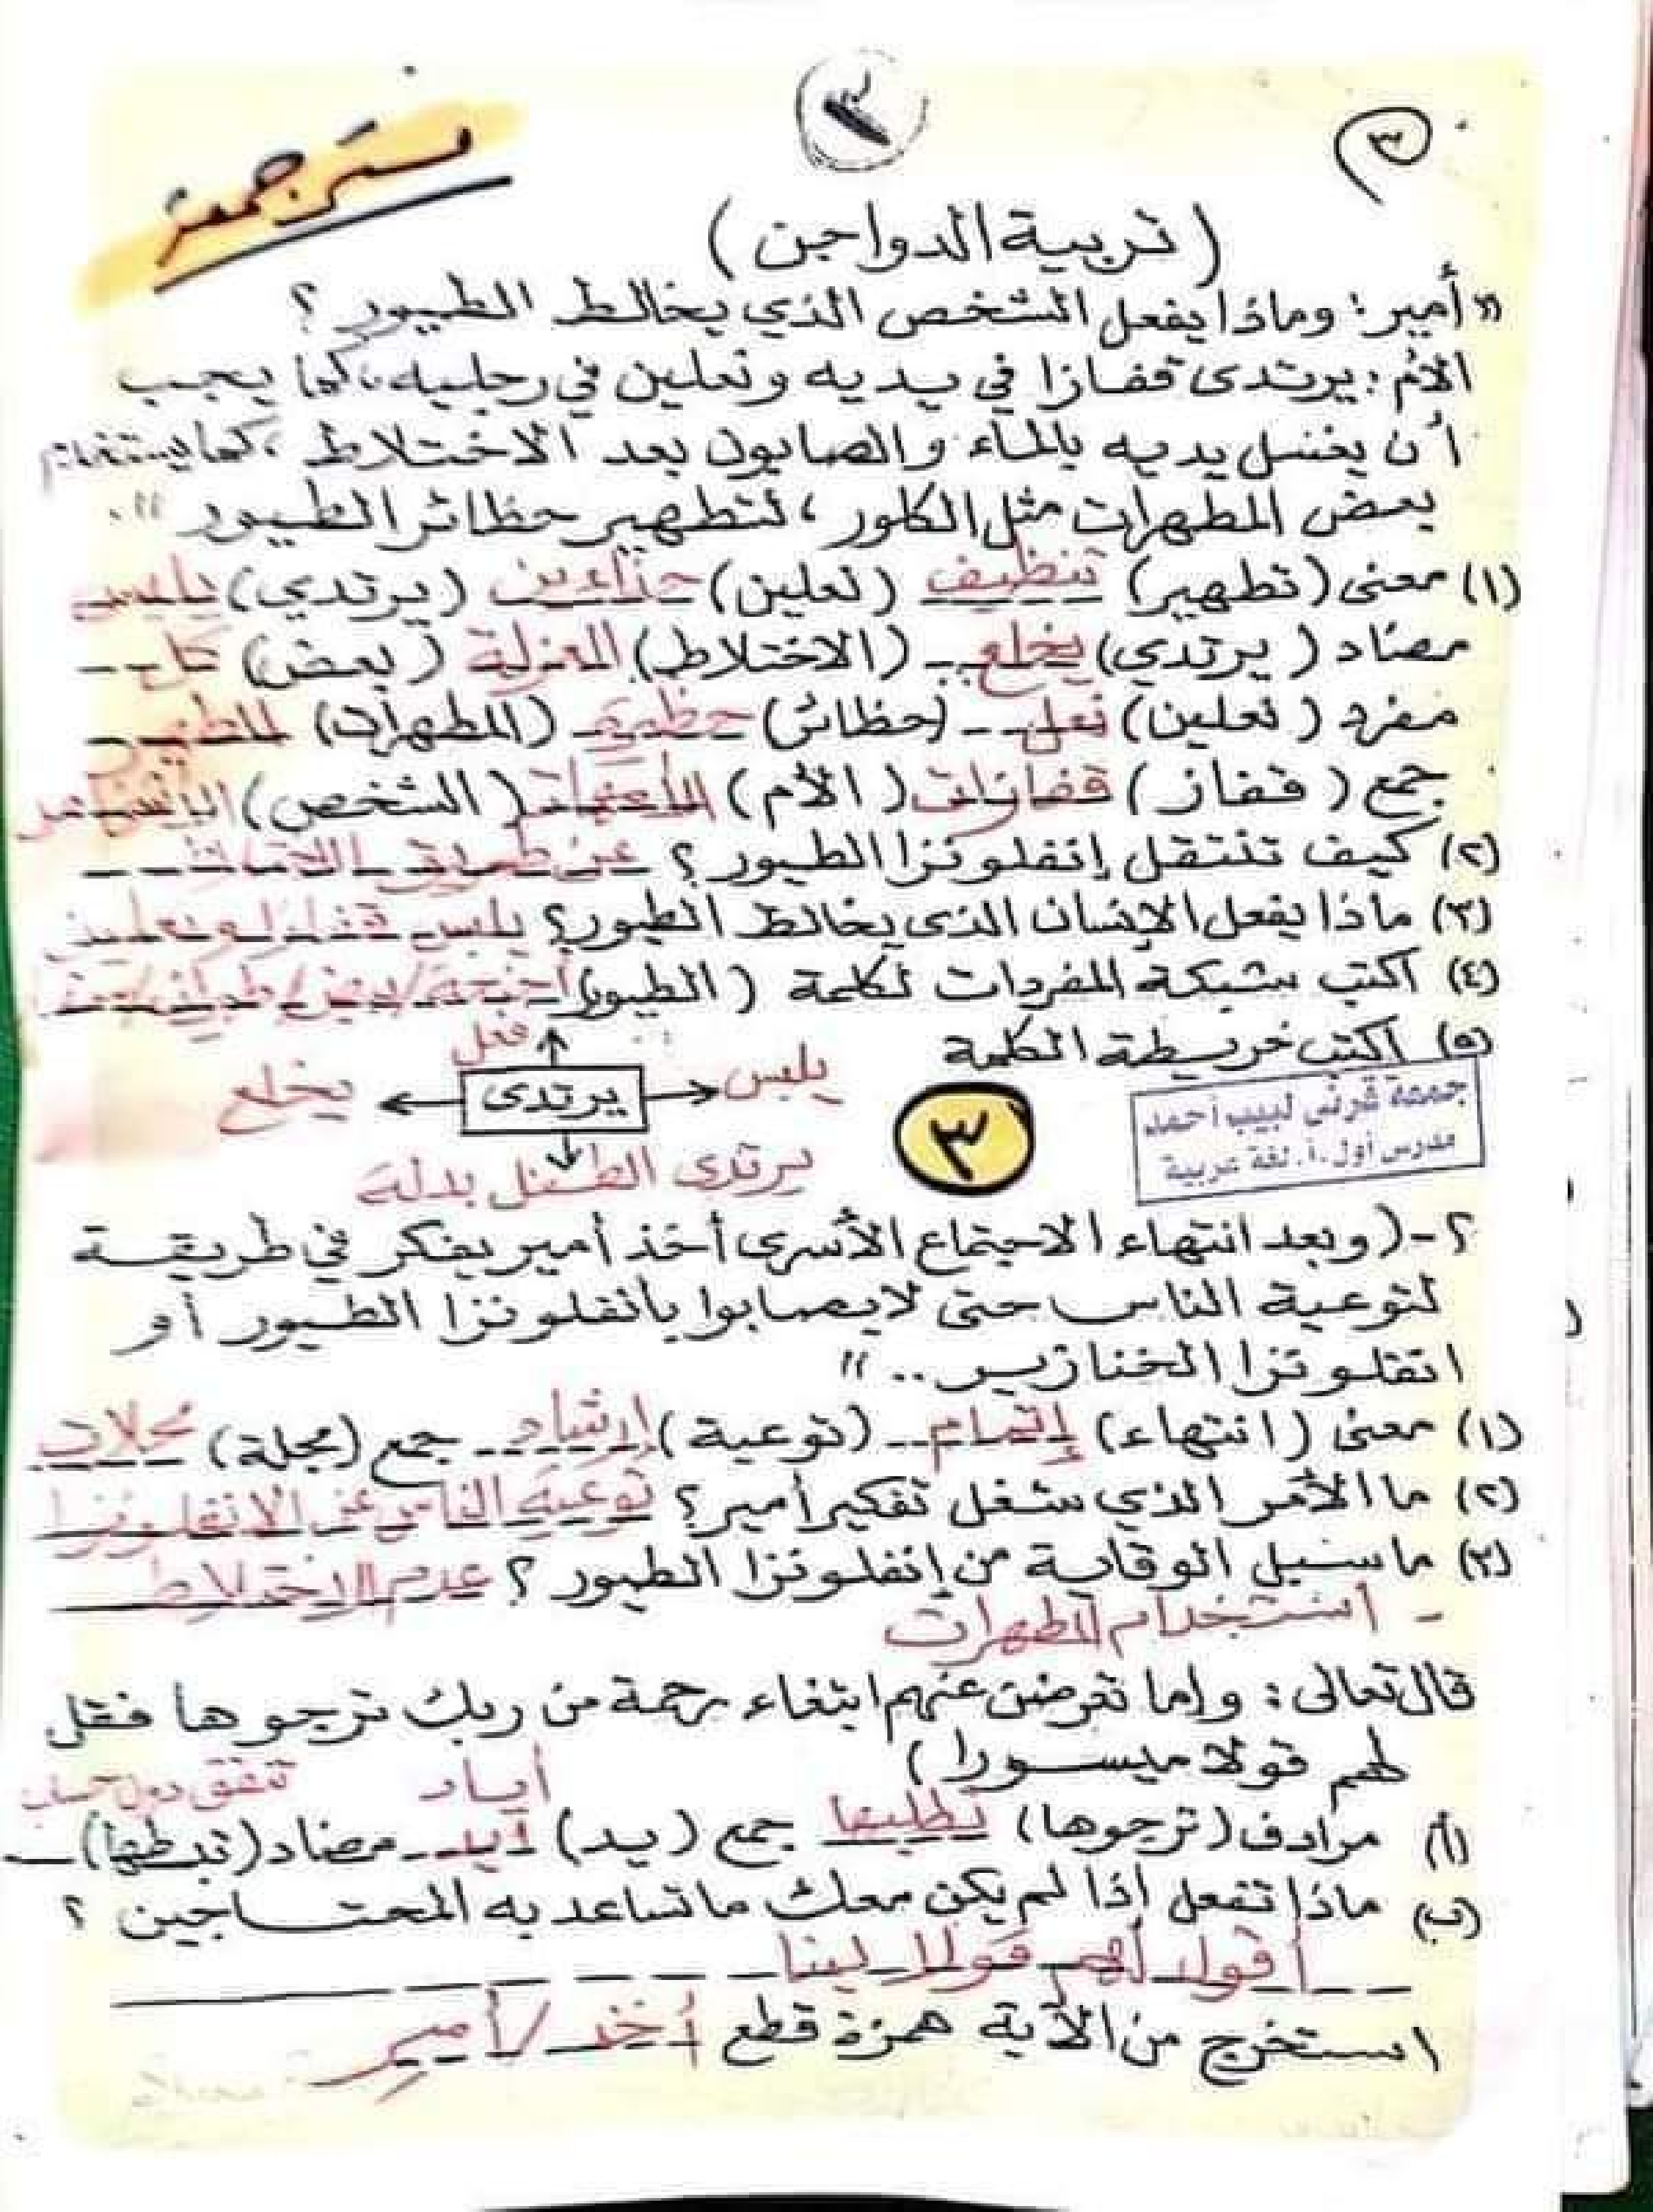 ٣
٢
مستر جمعة
(تربية الدواجن)
" أمير: وماذا يفعل الشخص الذي يخالط الطيور ؟
الأم: يرتدى قفازا في يديه ونعلين في رجليه، كما يجب
أن يغسل يديه بالماء والصابون بعد الاختلاط ، كما يستخدم
بعض المطهرات مثل الكلور ، لتطهير حظائر الطيور ".
(١) معنى (تطهير) تنظيف (نعلين) حذاءين (يرتدي) يلبس
مضاد (يرتدي) يخلع (الاختلاط) العزلة (بعض) كل
مفرد (نعلين) نعل (حظائر) حظيرة (المطهرات) المطهر
جمع (قفاز) قفازات (الأم) الأمهات (الشخص) الأشخاص
(٢) كيف تنتقل إنفلونزا الطيور؟ عن طريق
(٣) ماذا يفعل الإنسان الذى يخالط الطيور؟ يلبس قفازا ونعلين
(٤) اكتب شبكة المفردات لكلمة (الطيور) أجنحة / بيض / طيران /
(٥) اكتب خريطة الكلمة
فعل
يلبس
يرتدى
يخلع
يرتدى الطفل بدلة
٣
جمعة قرني لبيب أحمد
مدرس أول .أ. لغة عربية
٢- (وبعد انتهاء الاجتماع الأسرى أخذ أمير يفكر في طريقة
لتوعية الناس حتى لا يصابوا بانفلونزا الطيور أو
انفلونزا الخنازير .. "
(١) معنى (انتهاء) إتمام (توعية) إرشاد جمع (مجلة) مجلات
(٢) ما الأمر الذي شغل تفكير أمير؟ توعية الناس عن الانفلونزا
(٣) ما سبل الوقاية من إنفلونزا الطيور ؟ عدم الاختلاط
- استخدام المطهرات
قال تعالى: وإما تعرضن عنهم ابتغاء رحمة من ربك ترجوها فقل
لهم قولا ميسورا)
أياد
تنفق دون حساب
(أ) مرادف (ترجوها) تطلبها جمع (يد) أيد مضاد (تبسطها)
(ب) ماذا تفعل إذا لم يكن معك ما تساعد به المحتاجين ؟
أقول لهم قولا لينا
استخرج من الآية همزة قطع أخذ / أمير